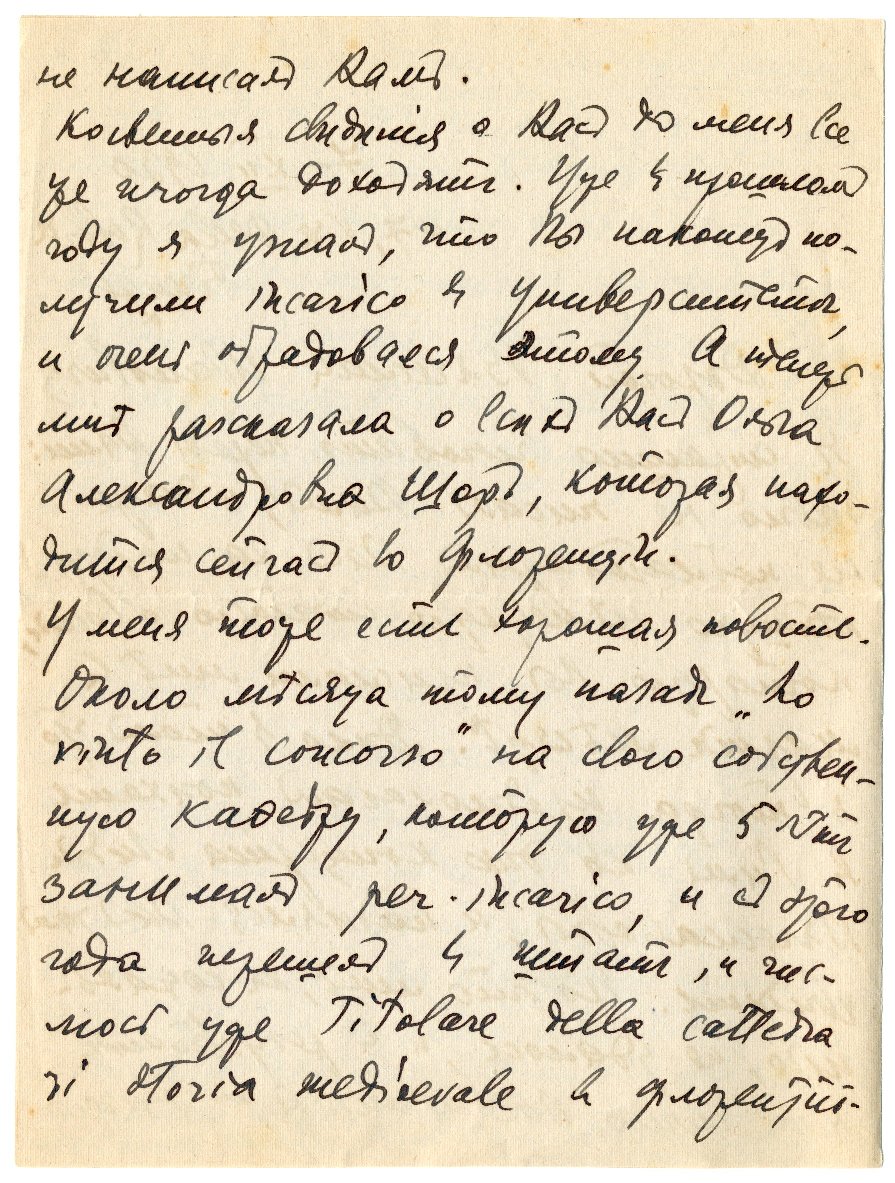 не написалъ Вамъ.
Косвенныя свѣдѣнія о Васъ до меня все
же иногда доходятъ. Уже въ прошломъ
году я узналъ, что Вы наконецъ по-
лучили incarico въ Университетѣ,
и очень обрадовался этому. А теперь
мнѣ разсказала о всѣхъ Васъ Ольга
Александровна Шоръ, которая нахо-
дится сейчасъ во Флоренціи.
У меня тоже есть хорошая новость.
Около мѣсяца тому назадъ „ho
vinto il concorso" на свою собствен-
ную кафедру, которую уже 5 лѣтъ
занималъ per incarico, и съ этого
года перешелъ въ штатъ, и чис-
люсь уже Titolare della cattedra
di storia medioevale во Флорентій-